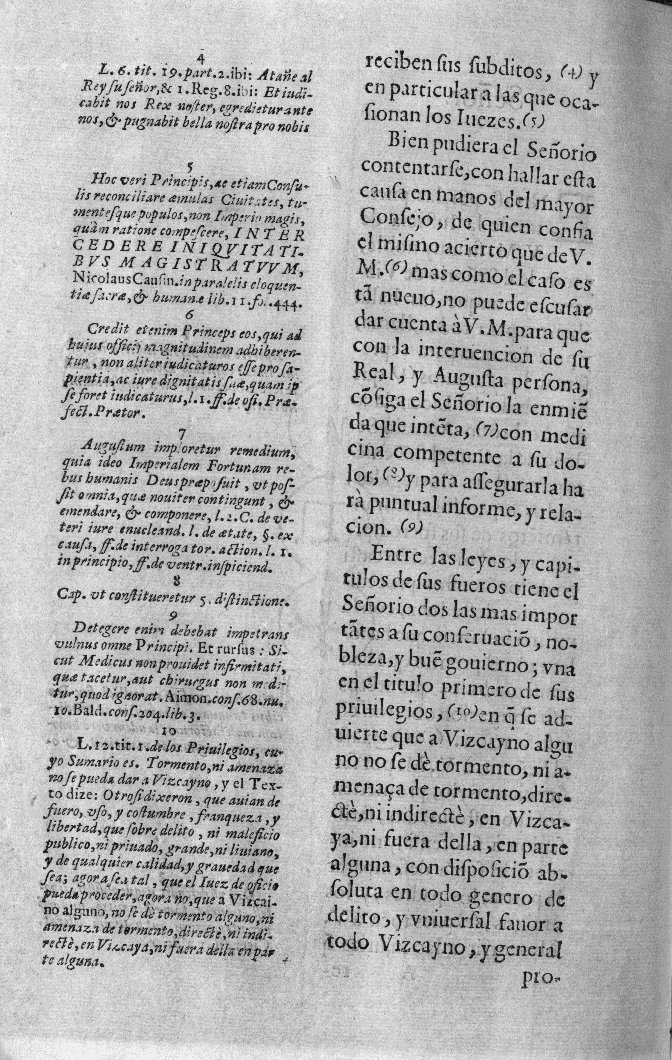 4
L. 6. tit. 19. part. 2. ibi: Atañe al
Rey su señor, & 1. Reg. 8. ibi: Et iudi-
cabit nos Rex noster, egredietur ante
nos, & pugnabit bella nostra pro nobis
5
Hoc veri Principis, ac etiam Consu-
lis reconciliare æmulas Ciuitates, tu-
mentesque populos, non Imperio magis,
quàm ratione compescere, INTER
CEDERE INIQVITATI-
BVS MAGISTRATVVM,
Nicolaus Causin. in paralelis eloquen-
tiæ sacræ, & humanæ lib. 11. fo. 444.
6
Credit etenim Princeps eos, qui ad
huius officij magnitudinem adhiberen-
tur, non aliter iudicaturos esse pro sa-
pientia, ac iure dignitatis suæ, quam ip
se foret indicaturus, l. 1. ff. de ofi. Præ-
fect. Prætor.
7
Augustum imploretur remedium,
quia ideo Imperialem Fortunam re-
bus humanis Deus præposuit, vt pos-
sit omnia, quæ nouiter contingunt, &
emendare, & componere, l. 2. C. de ve-
teri iure enucleand. l. de ætate, §. ex
causa, ff. de interrogator. action. l. 1.
in principio, ff. de ventr. inspiciend.
8
Cap. vt constitueretur 5. distinctione.
9
Detegere enim debebat impetrans
vulnus omne Principi. Et rursus: Si-
cut Medicus non prouidet infirmitati,
quæ tacetur, aut chirurgus non medi-
tur, quod ignorat. Aimon. cons. 68. nu.
10. Bald. cons. 204. lib. 3.
10
L. 12. tit. 1. de los Priuilegios, cu-
yo Sumario es. Tormento, ni amenaza
no se pueda dar a Vizcayno, y el Tex-
to dize: Otrosi dixeron, que auian de
fuero, vso, y costumbre, franqueza, y
libertad, que sobre delito, ni maleficio
publico, ni priuado, grande, ni liuiano,
y de qualquier calidad, y grauedad que
sea; agora sea tal, que el Iuez de oficio
pueda proceder, agora no, que a Vizcai-
no alguno, no se dè tormento alguno, ni
amenaza de tormento, directè, ni indi-
rectè, en Vizcaya, ni fuera della en par
te alguna.
reciben sus subditos, (4) y
en particular a las que oca-
sionan los Iuezes. (5)
Bien pudiera el Señorio
contentarse, con hallar esta
causa en manos del mayor
Consejo, de quien confia
el mismo acierto que de V.
M. (6) mas como el caso es
tã nueuo, no puede escusar
dar cuenta à V. M. para que
con la interuencion de su
Real, y Augusta persona,
cõsiga el Señorio la enmiẽ
da que intẽta, (7) con medi
cina competente a su do-
lor, (8) y para assegurarla ha
rà puntual informe, y rela-
cion. (9)
Entre las leyes, y capi-
tulos de sus fueros tiene el
Señorio dos las mas impor
tãtes a su conseruaciõ, no-
bleza, y buẽ gouierno; vna
en el titulo primero de sus
priuilegios, (10) en q̃ se ad-
uierte que a Vizcayno algu
no no se dè tormento, ni a-
menaça de tormento, dire-
ctè, ni indirectè, en Vizca-
ya, ni fuera della, en parte
alguna, con disposiciõ ab-
soluta en todo genero de
delito, y vniuersal fauor a
todo Vizcayno, y general
pro-